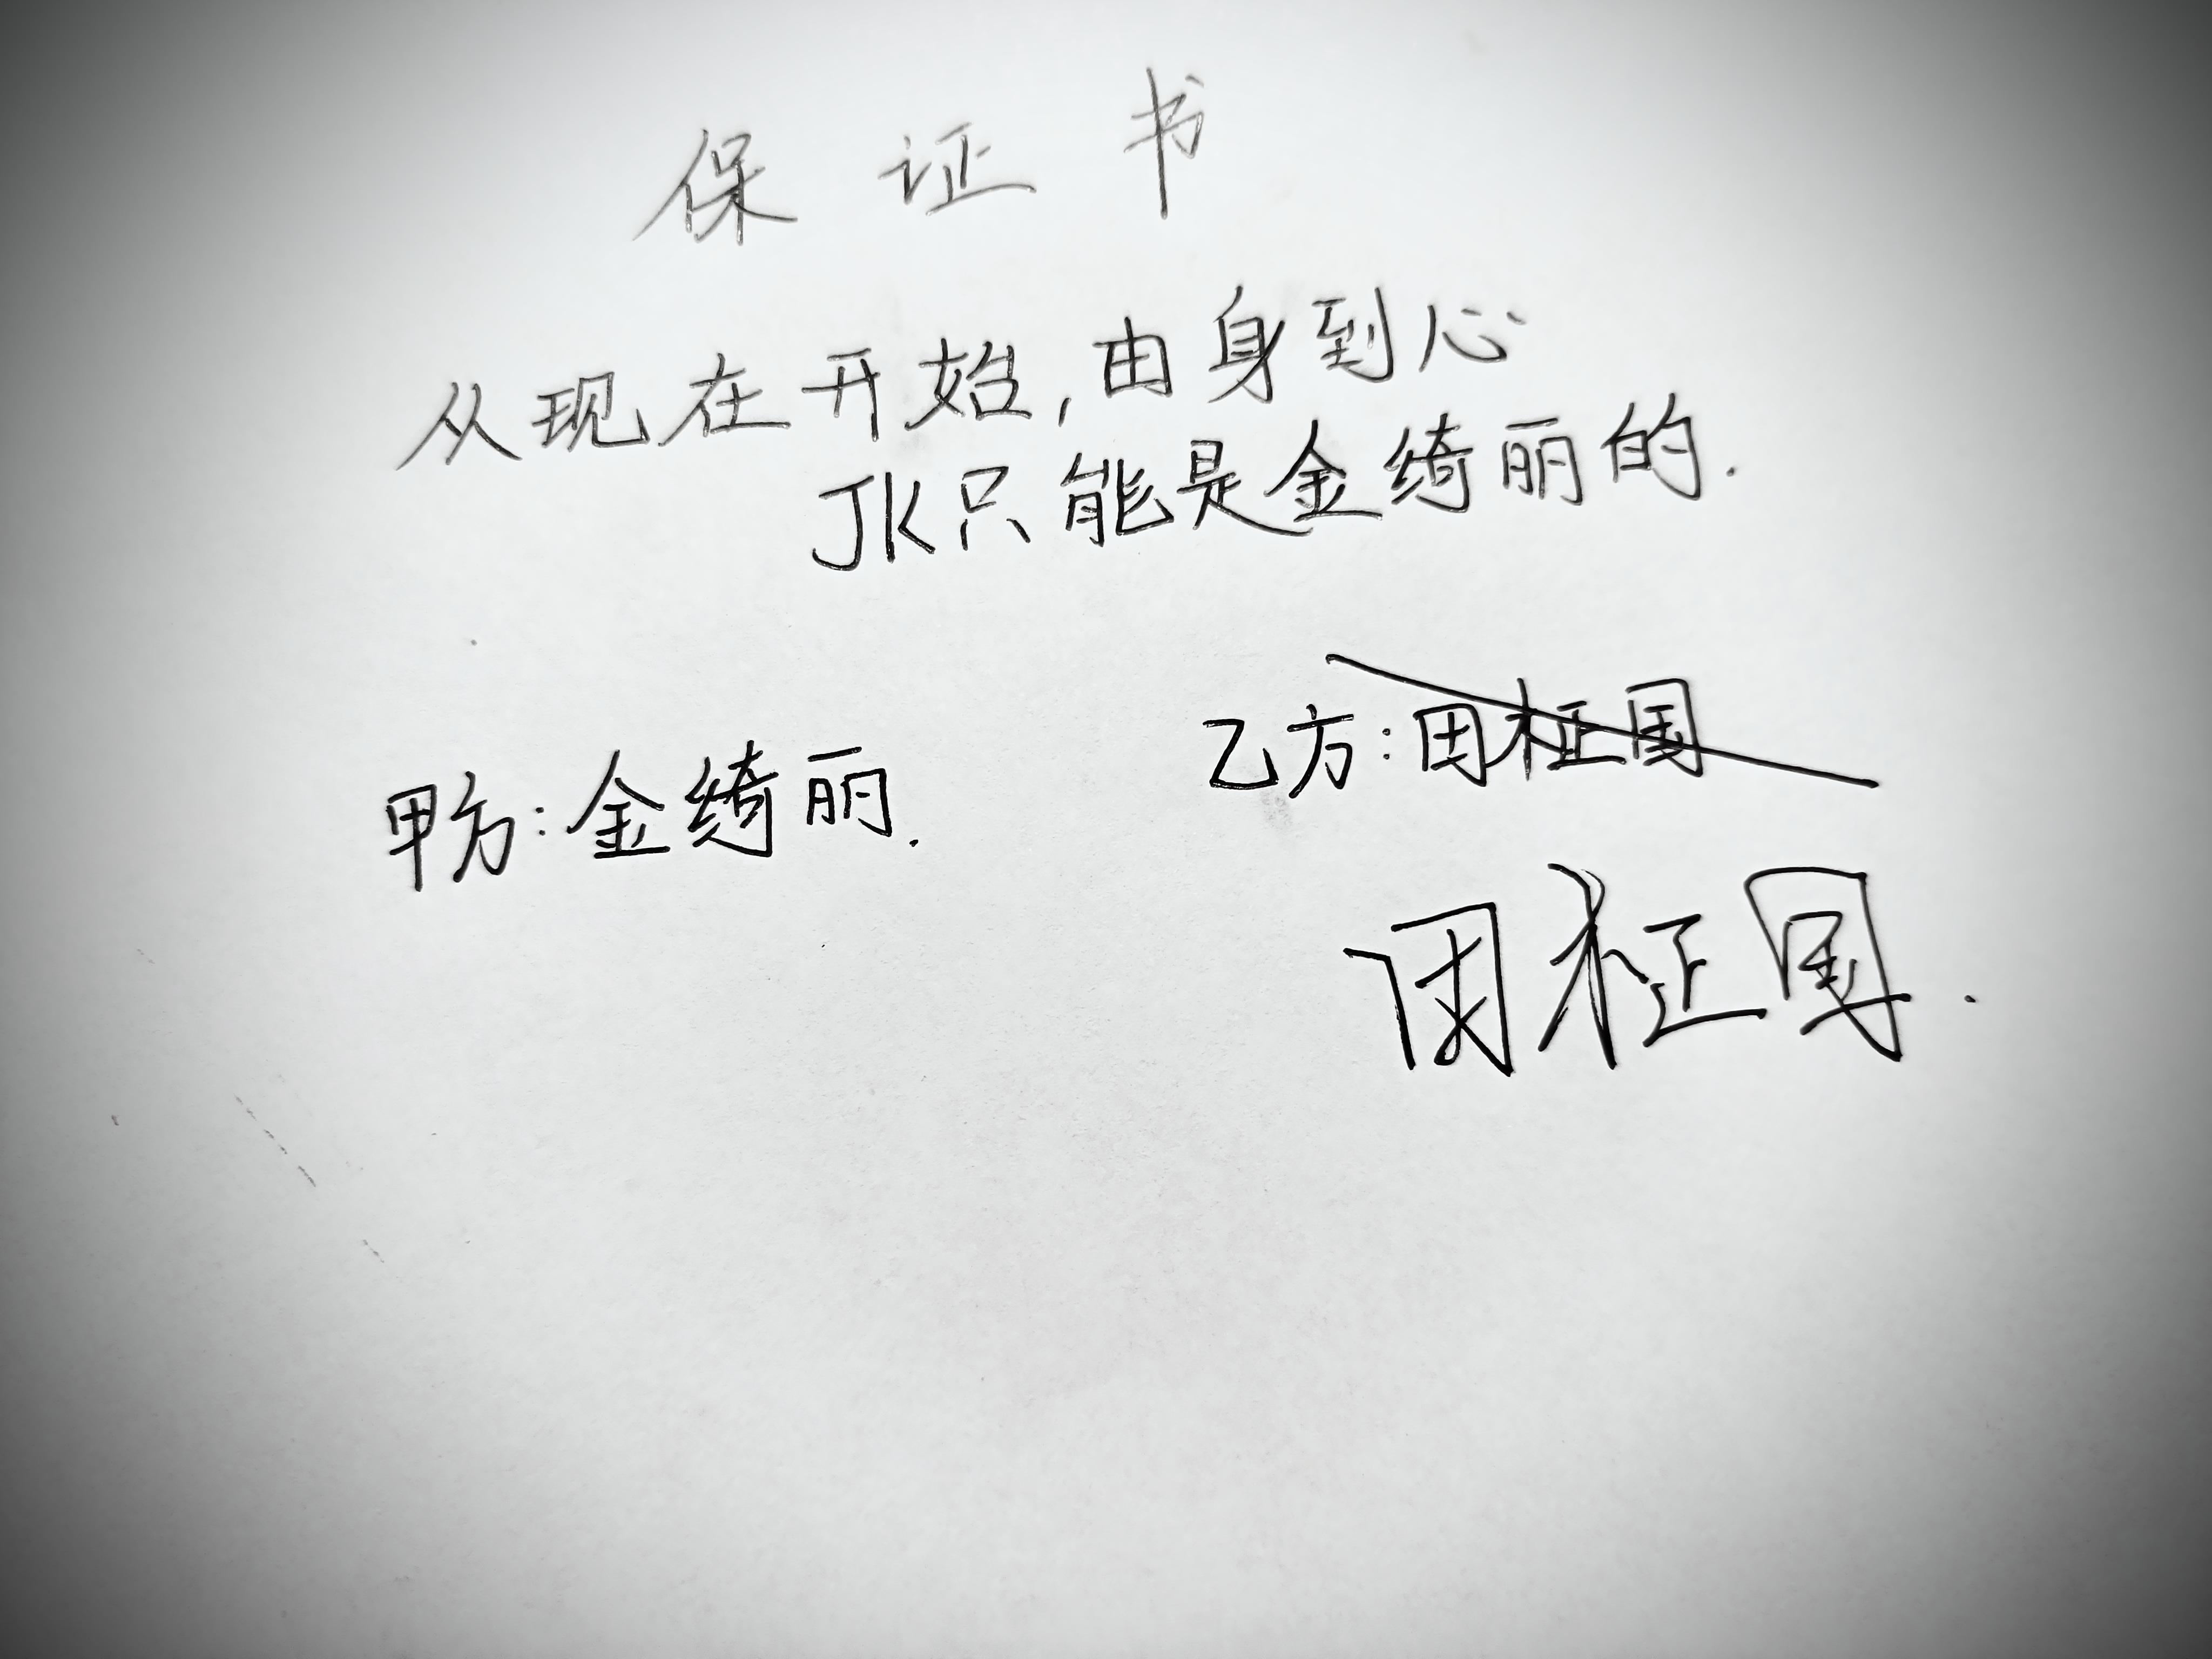 保证书
从现在开始,由身到心
JK只能是金绮丽的.
甲方:金绮丽.
乙方:田柾国
田柾国.